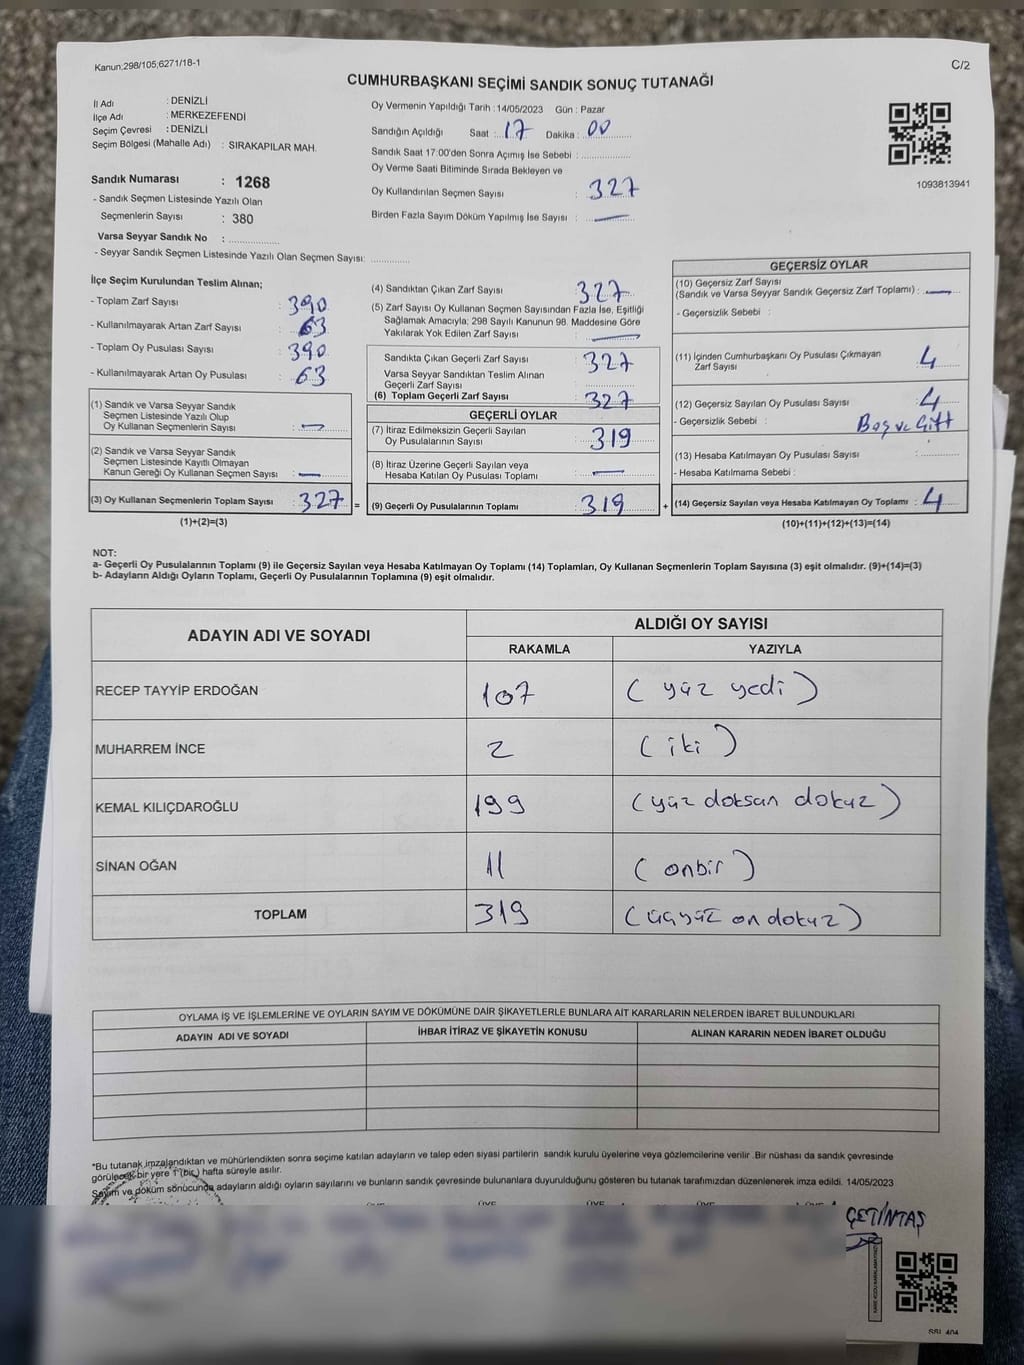 Kanun:298/105;6271/18-1
C/2
CUMHURBAŞKANI SEÇİMİ SANDIK SONUÇ TUTANAĞI
İl Adı : DENİZLİ
İlçe Adı : MERKEZEFENDİ
Seçim Çevresi : DENİZLİ
Seçim Bölgesi (Mahalle Adı) : SIRAKAPILAR MAH.
Sandık Numarası : 1268
- Sandık Seçmen Listesinde Yazılı Olan
Seçmenlerin Sayısı : 380
Varsa Seyyar Sandık No : ..................
- Seyyar Sandık Seçmen Listesinde Yazılı Olan Seçmen Sayısı: .............
Oy Vermenin Yapıldığı Tarih : 14/05/2023 Gün : Pazar
Sandığın Açıldığı Saat : 17 Dakika : 00
Sandık Saat 17:00'den Sonra Açımış İse Sebebi : ................
Oy Verme Saati Bitiminde Sırada Bekleyen ve
Oy Kullandırılan Seçmen Sayısı : 327
Birden Fazla Sayım Döküm Yapılmış İse Sayısı : —
1093813941
İlçe Seçim Kurulundan Teslim Alınan;
- Toplam Zarf Sayısı : 390
- Kullanılmayarak Artan Zarf Sayısı : 63
- Toplam Oy Pusulası Sayısı : 390
- Kullanılmayarak Artan Oy Pusulası : 63
(1) Sandık ve Varsa Seyyar Sandık
Seçmen Listesinde Yazılı Olup
Oy Kullanan Seçmenlerin Sayısı : —
(2) Sandık ve Varsa Seyyar Sandık
Seçmen Listesinde Kayıtlı Olmayan
Kanun Gereği Oy Kullanan Seçmen Sayısı : —
(3) Oy Kullanan Seçmenlerin Toplam Sayısı : 327 =
(1)+(2)=(3)
(4) Sandıktan Çıkan Zarf Sayısı : 327
(5) Zarf Sayısı Oy Kullanan Seçmen Sayısından Fazla İse, Eşitliği
Sağlamak Amacıyla; 298 Sayılı Kanunun 98. Maddesine Göre
Yakılarak Yok Edilen Zarf Sayısı : —
Sandıkta Çıkan Geçerli Zarf Sayısı : 327
Varsa Seyyar Sandıktan Teslim Alınan
Geçerli Zarf Sayısı : ................
(6) Toplam Geçerli Zarf Sayısı : 327
GEÇERLİ OYLAR
(7) İtiraz Edilmeksizin Geçerli Sayılan
Oy Pusulalarının Sayısı : 319
(8) İtiraz Üzerine Geçerli Sayılan veya
Hesaba Katılan Oy Pusulası Toplamı : —
(9) Geçerli Oy Pusulalarının Toplamı : 319 +
GEÇERSİZ OYLAR
(10) Geçersiz Zarf Sayısı
(Sandık ve Varsa Seyyar Sandık Geçersiz Zarf Toplamı) : —
- Geçersizlik Sebebi :
(11) İçinden Cumhurbaşkanı Oy Pusulası Çıkmayan
Zarf Sayısı : 4
(12) Geçersiz Sayılan Oy Pusulası Sayısı : 4
- Geçersizlik Sebebi : Boş ve Çift
(13) Hesaba Katılmayan Oy Pusulası Sayısı : ..............
- Hesaba Katılmama Sebebi :
(14) Geçersiz Sayılan veya Hesaba Katılmayan Oy Toplamı : 4
(10)+(11)+(12)+(13)=(14)
NOT:
a- Geçerli Oy Pusulalarının Toplamı (9) ile Geçersiz Sayılan veya Hesaba Katılmayan Oy Toplamı (14) Toplamları, Oy Kullanan Seçmenlerin Toplam Sayısına (3) eşit olmalıdır. (9)+(14)=(3)
b- Adayların Aldığı Oyların Toplamı, Geçerli Oy Pusulalarının Toplamına (9) eşit olmalıdır.
ADAYIN ADI VE SOYADI
ALDIĞI OY SAYISI
RAKAMLA YAZIYLA
RECEP TAYYİP ERDOĞAN 107 (yüz yedi)
MUHARREM İNCE 2 (iki)
KEMAL KILIÇDAROĞLU 199 (yüz doksan dokuz)
SİNAN OĞAN 11 (onbir)
TOPLAM 319 (üçyüz on dokuz)
OYLAMA İŞ VE İŞLEMLERİNE VE OYLARIN SAYIM VE DÖKÜMÜNE DAİR ŞİKAYETLERLE BUNLARA AİT KARARLARIN NELERDEN İBARET BULUNDUKLARI
ADAYIN ADI VE SOYADI İHBAR İTİRAZ VE ŞİKAYETİN KONUSU ALINAN KARARIN NEDEN İBARET OLDUĞU
*Bu tutanak imzalandıktan ve mühürlendikten sonra seçime katılan adayların ve talep eden siyasi partilerin sandık kurulu üyelerine veya gözlemcilerine verilir .Bir nüshası da sandık çevresinde
görülecek bir yere 1 (bir) hafta süreyle asılır.
Sayım ve döküm sonucunda adayların aldığı oyların sayılarını ve bunların sandık çevresinde bulunanlara duyurulduğunu gösteren bu tutanak tarafımızdan düzenlenerek imza edildi. 14/05/2023
ÜYE ÜYE ÜYE ÜYE
ÇETİNTAŞ